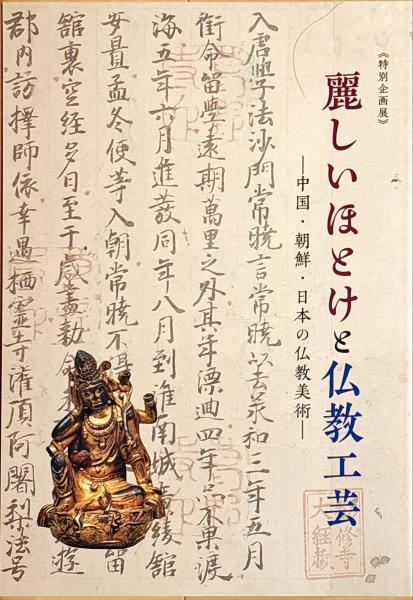 《特別企画展》
麗しいほとけと仏教工芸
―中国・朝鮮・日本の仏教美術―
入唐學法沙門常曉言常曉以去承和三年五月
銜命留學遠期萬里之外其年漂迴四年亦不果渡
海五年六月進發同年八月到淮南城廣陵館
安置孟冬使等入朝常曉不得 留
舘裏空經多日至于歲盡勅命 遊
郡内訪擇師依幸遇栖靈寺灌頂阿闍梨法号
修寺
大経蔵